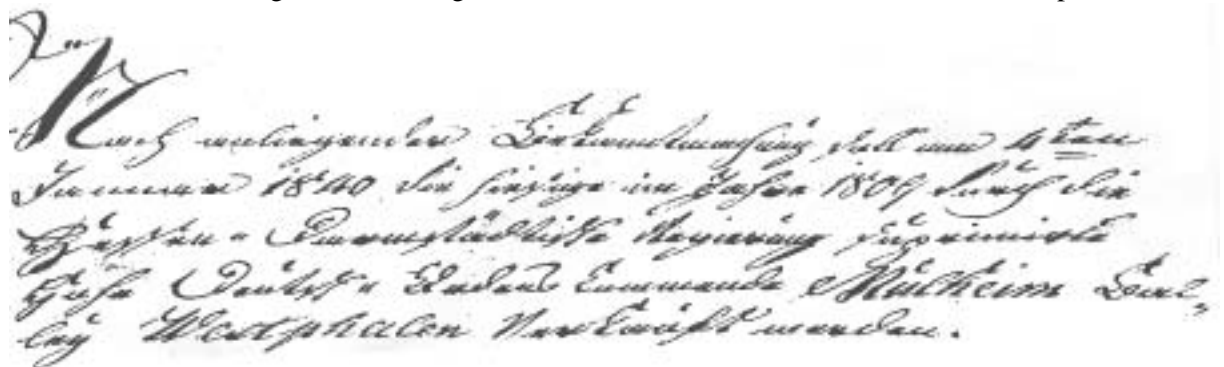 Nach anliegender Bekanntmachung soll am 4ten
Januar 1840 die hiesige im Jahre 1809 durch die
Hessen-Darmstädtische Regierung supprimirte
Hohe Deutsch-Ordens Commende Mülheim Bal-
ley Westphalen verkauft werden.